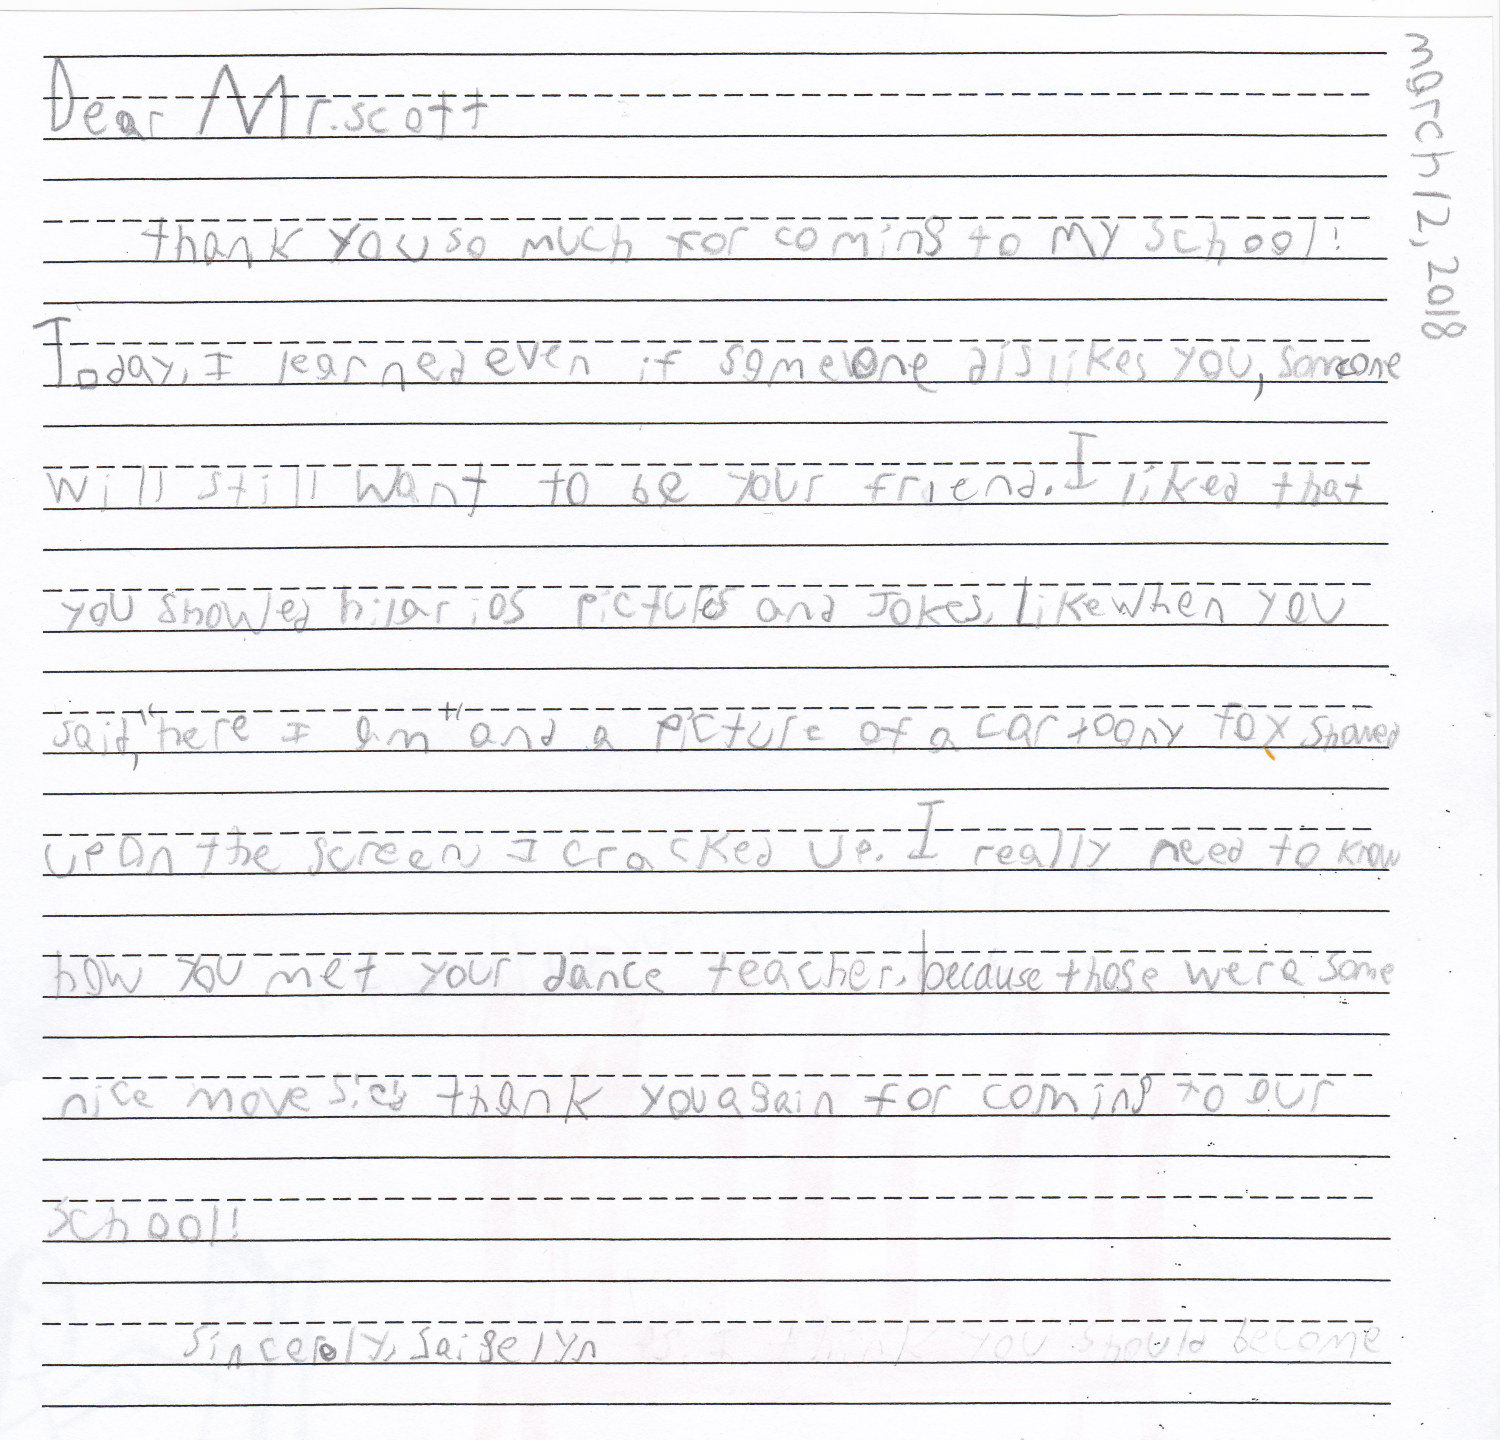 march 12, 2018
Dear Mr. scott
thank you so much for coming to my school!
Today, I learned even if someone dislikes you, someone
will still want to be your friend. I liked that
you showed hilarios pictures and Jokes, Like when you
said, "here I am" and a picture of a cartoony fox showed
up on the screen I cracked up. I really need to know
how you met your dance teacher, because those were some
nice moves. thank you again for coming to our
school!
Sincerely, Saigelyn P.S. I think you should become